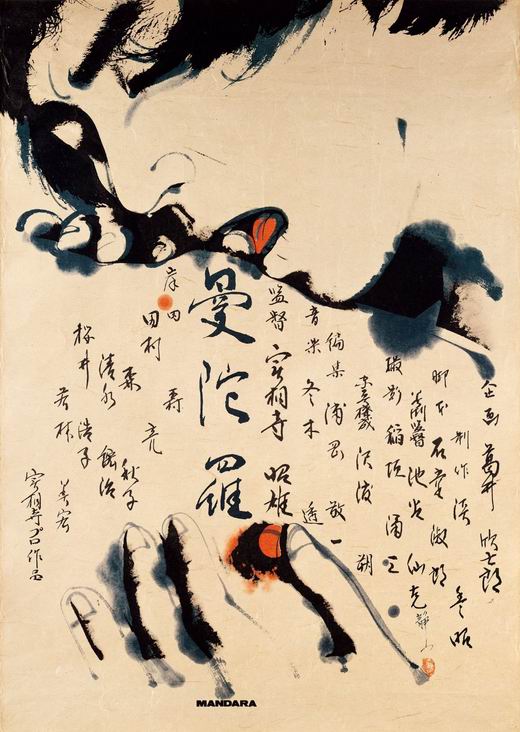 企画 葛井欣士郎
制作 淡豊昭
脚本 石堂淑朗
美術監督 池谷仙克
静山
撮影 稲垣涌三
編集 浦岡敬一
音楽 冬木透
監督 実相寺昭雄
曼陀羅
岸田
田村 亮
森 秋子
清水 紘治
桜井 浩子
若林 美宏
実相寺プロ作品
MANDARA